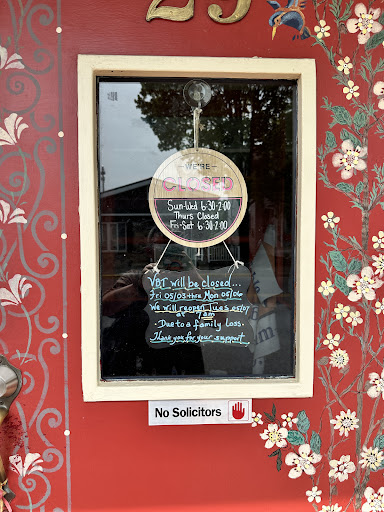 25
WE'RE
CLOSED
Sun-Wed 6:30-2:00
Thurs Closed
Fri-Sat 6:30-2:00
VBT will be closed...
Fri 05/03 thru Mon 05/06
We will reopen Tues 05/07
at 7am
· Due to a family loss ·
Thank you for your support
No Solicitors